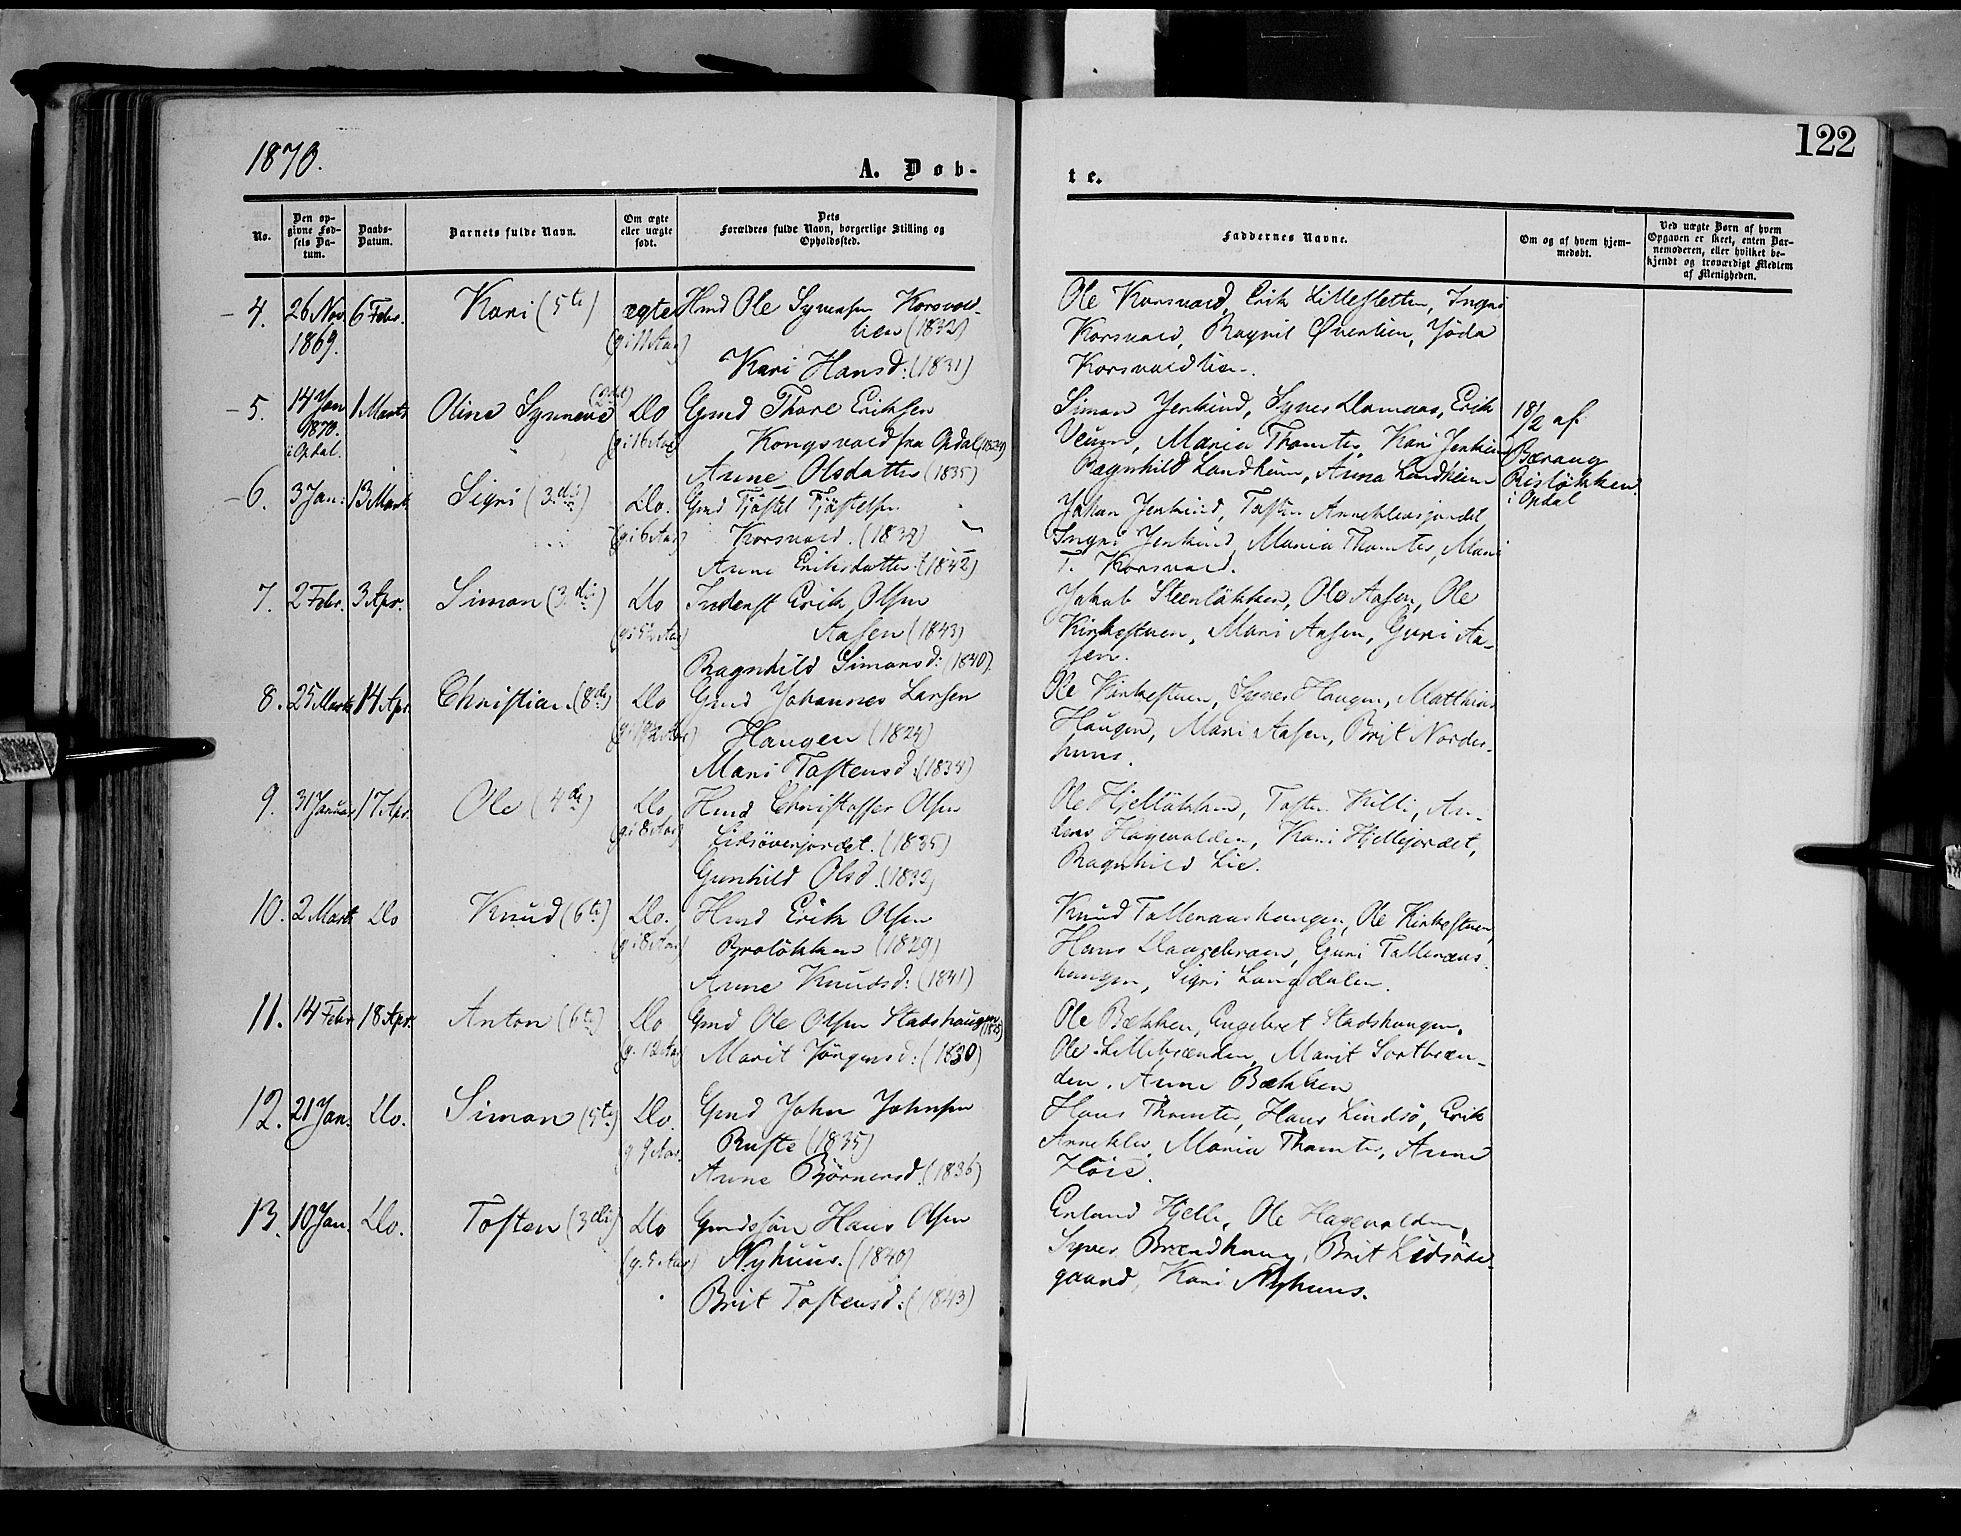 1870.
A. Døb-
te.
122
No.
Den op-
givne Fød-
sels Da-
tum.
Daabs-
Datum.
Barnets fulde Navn.
Om ægte
eller uægte
født.
Dets
Forældres fulde Navn, borgerlige Stilling og
Opholdssted.
Faddernes Navne.
Om og af hvem hjem-
medøbt.
Ved uægte Børn af hvem
Opgaven er skeet, enten Bar-
nemoderen, eller hvilket be-
kjendt og troværdigt Medlem
af Menigheden.
4. 26 Nov. 6 Febr. Kari (5te) ægte Hmd Ole Syversen Korsvold-
1869. (gi 11 Aar) lien (1832)
Kari Hansd: (1831)
Ole Korsvold, Erik Lillesletten, Ingri
Korsvold, Ragnil Øverlien, Jøda
Korsvoldlien.
5. 14 Jan 1 Marts Oline Synneve (2det) Do Gmd Thore Eriksen
1870. i Opdal. (gi 16 Aar) Kongsvold fra Opdal (1824)
Anne Olsdatter (1835)
Simon Jenkind, Syver Damaas, Erik
Veum, Maria Thomter, Kari Jenkind
Ragnhild Landheim, Anna Landheim
18/2 af
Risløkken
i Opdal
6. 3 Jan: 13 Marts Sigri (3die) Do. Gmd Tjøstel Tjøstelsen
(gi 6 Aar) Korsvold. (1832)
Anne Eriksdatter (1842)
Johan Jenkind, Tosten Anneklevsjordet
Ingri Jenkind, Maria Thomter, Mari
T. Korsvold.
7. 2 Febr. 3 Apr. Simon (3die) Do Inderst Erik Olsen
(gi 5½ Aar) Aasen (1843)
Ragnhild Simonsd: (1840).
Jakob Steenløkken, Ole Aasen, Ole
Kirkestuen, Mari Aasen, Guri Aa-
sen.
8. 25 Marts 14 Apr. Christian (8de) Do Gmd Johannes Larsen
Haugen (1824)
Mari Tostensd. (1834)
Ole Kirkestuen, Syver Haugen, Matthias
Haugen, Mari Aasen, Brit Norde-
huus.
9. 31 Januar 17 Apr. Ole (4de) Do Hmd Christoffer Olsen
(gi 8 Aar) Lidsøverjordet. (1835)
Gunhild Olsd. (1832)
Ole Hjelløkken, Tosten Killi, An-
ders Hagevolden, Kari Hjellejordet,
Ragnhild Lie.
10. 2 Marts Do Knud (6te) Do. Hmd Erik Olsen
(gi 8 Aar) Broløkken (1829)
Anne Knudsd: (1841)
Knud Tolleraashaugen, Ole Kirkestuen,
Hans, Guri Tolleraas-
haugen, Sigri Langdalen.
11. 14 Febr 18 Apr. Anton (6te) Do Gmd Ole Olsen Stadshaugen
(g. 12 Aar) Marit Jørgensd: (1830)
Ole Bækken, Engebret Stadshaugen,
Ole Lillebrænden, Marit Sortbræn-
den, Anne Bækken
12. 21 Jan. Do. Simon (5te) Do. Gmd John Johnsen
g 9 Aar. Ruste (1835)
Anne Bjørnersd. (1836)
Hans Thomter, Hans Lindsø, Erik
Anneklev, Maria Thomter, Anne
Høie.
13. 10 Jan. Do. Tosten (3die) Do Gmdssøn Hans Olsen
(g. 5 Aar) Nyhuus. (1840)
Brit Tostensd: (1843)
Erland Hjelle, Ole Hagevolden,
Syver Brændhaug, Brit Lidsøde-
gaard, Kari Nyhuus.